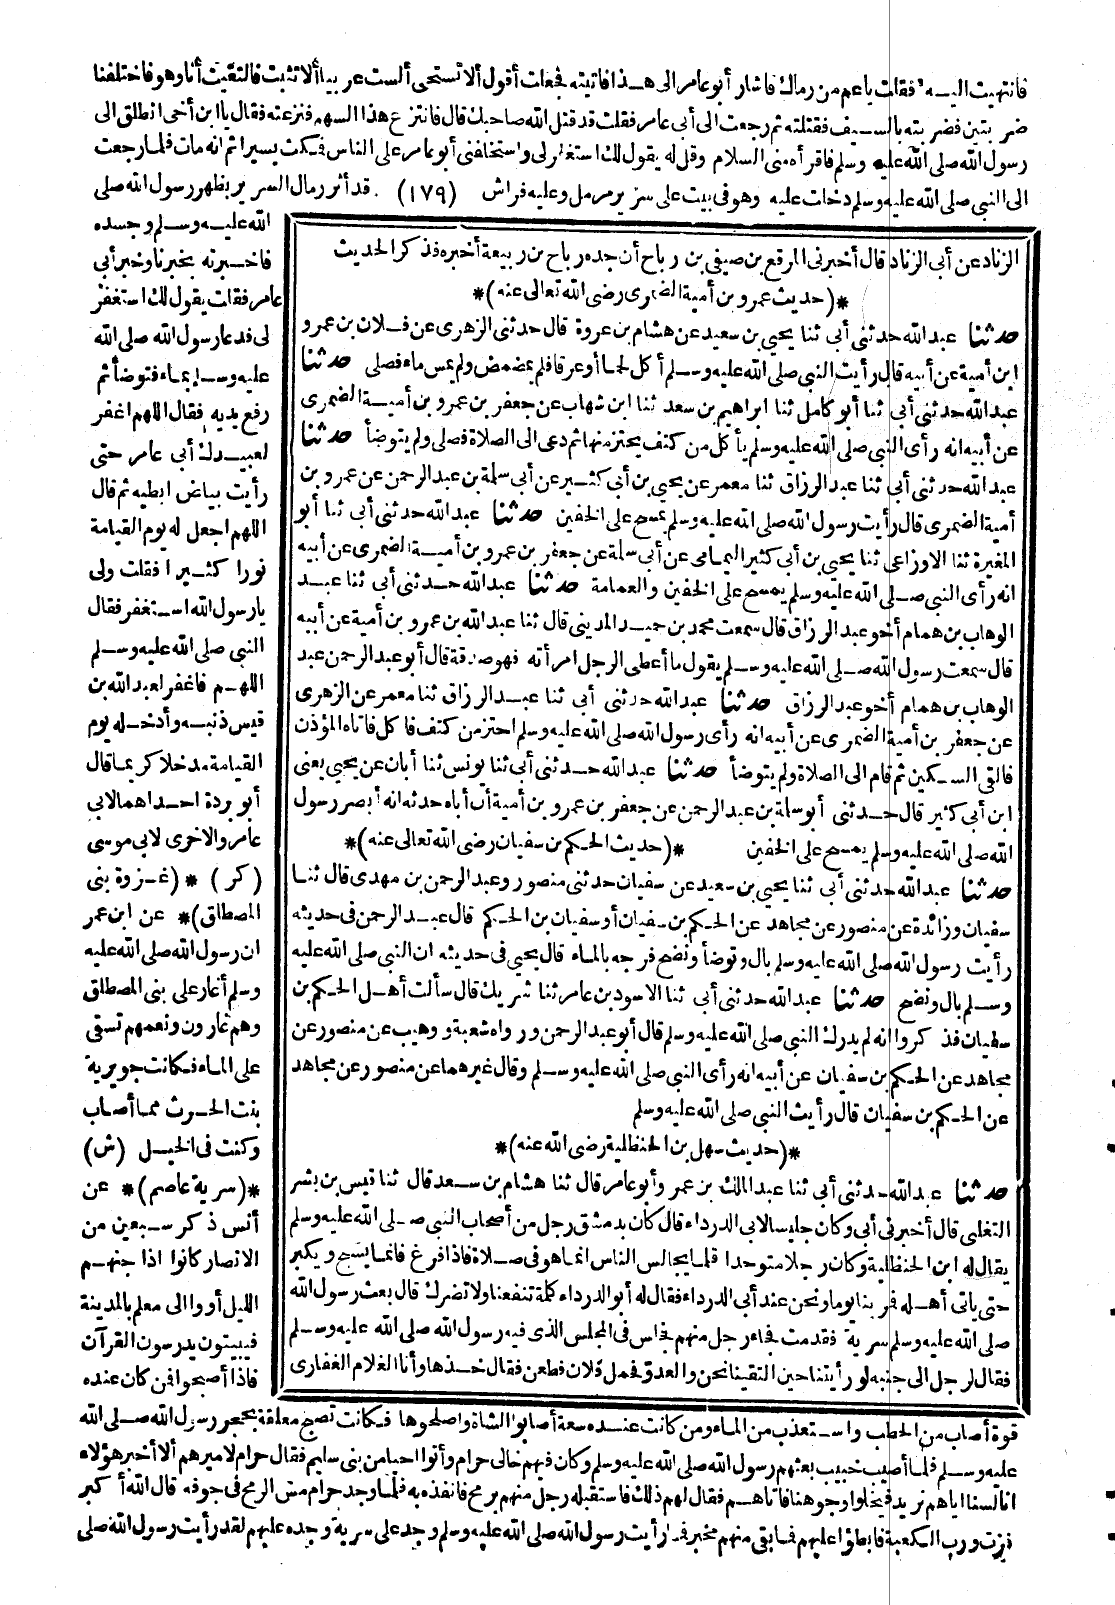 فانتهيت اليه فقلت ياعم من رماك فاشار أبو عامر الى هذا فاتيته فجعلت أقول ألا تستحى ألست عربيا ألا تثبت فالتقيت أنا وهو فاختلفنا
ضربتين فضربته بالسيف فقتلته ثم رجعت الى أبى عامر فقلت قد قتل الله صاحبك قال فانتزع هذا السهم فنزعته فقال يا ابن أخى انطلق الى
رسول الله صلى الله عليه وسلم فاقرأه منى السلام وقل له يقول لك استغفر لى واستخلفنى أبو عامر على الناس فمكث يسيرا ثم انه مات فلما رجعت
الى النبى صلى الله عليه وسلم دخلت عليه وهو فى بيت على سرير مرمل وعليه فراش (١٧٩) قد أثر رمال السرير بظهر رسول الله صلى
الله عليه وسلم وجسده
فاخبرته بخبرنا وخبر أبى
عامر فقلت يقول لك استغفر
لى فدعا رسول الله صلى الله
عليه وسلم بماء فتوضأ ثم
رفع يديه فقال اللهم اغفر
لعبيدك أبى عامر حتى
رأيت بياض ابطيه ثم قال
اللهم اجعل له يوم القيامة
نورا كثيرا فقلت ولى
يارسول الله استغفر فقال
النبى صلى الله عليه وسلم
اللهم فاغفر لعبد الله بن
قيس ذنبه وأدخله يوم
القيامة مدخلا كريما قال
أبو بردة احداهما لابى
عامر والاخرى لابى موسى
(كر) *(غزوة بنى
المصطلق)* عن ابن عمر
ان رسول الله صلى الله عليه
وسلم أغار على بنى المصطلق
وهم غارون ونعمهم تسقى
على الماء فكانت جويرية
بنت الحرث مما أصاب
وكنت فى الخيل (ش)
*(سرية عاصم)* عن
أنس ذكر سبعين من
الانصار كانوا اذا جنهم
الليل أووا الى معلم بالمدينة
فيبيتون يدرسون القرآن
فاذا أصبحوا فمن كان عنده
الزناد عن أبى الزناد قال أخبرنى المرقع بن صيفى بن رباح أن جده رباح بن ربيعة أخبره فذكر الحديث
*(حديث عمرو بن أمية الضمرى رضى الله تعالى عنه)*
حدثنا عبد الله حدثنى أبى ثنا يحيى بن سعيد عن هشام بن عروة قال حدثنى الزهرى عن فلان بن عمرو
ابن أمية عن أبيه قال رأيت النبى صلى الله عليه وسلم أكل لحما أو عرقا فلم يمضمض ولم يمس ماء فصلى حدثنا
عبد الله حدثنى أبى ثنا أبو كامل ثنا ابراهيم بن سعد ثنا ابن شهاب عن جعفر بن عمرو بن أمية الضمرى
عن أبيه انه رأى النبى صلى الله عليه وسلم يأكل من كتف يحتز منها ثم دعى الى الصلاة فصلى ولم يتوضأ حدثنا
عبد الله حدثنى أبى ثنا عبد الرزاق ثنا معمر عن يحيى بن أبى كثير عن أبى سلمة بن عبد الرحمن عن عمرو بن
أمية الضمرى قال رأيت رسول الله صلى الله عليه وسلم يمسح على الخفين حدثنا عبد الله حدثنى أبى ثنا أبو
المغيرة ثنا الاوزاعى ثنا يحيى بن أبى كثير اليمامى عن أبى سلمة عن جعفر بن عمرو بن أمية الضمرى عن أبيه
انه رأى النبى صلى الله عليه وسلم يمسح على الخفين والعمامة حدثنا عبد الله حدثنى أبى ثنا عبد
الوهاب بن همام أخو عبد الرزاق قال سمعت محمد بن حميد المدينى قال ثنا عبد الله بن عمرو بن أمية عن أبيه
قال سمعت رسول الله صلى الله عليه وسلم يقول ما أعطى الرجل امرأته فهو صدقة قال أبو عبد الرحمن عبد
الوهاب بن همام أخو عبد الرزاق حدثنا عبد الله حدثنى أبى ثنا عبد الرزاق ثنا معمر عن الزهرى
عن جعفر بن أمية الضمرى عن أبيه انه رأى رسول الله صلى الله عليه وسلم احتز من كتف فاكل فاتاه المؤذن
فالقى السكين ثم قام الى الصلاة ولم يتوضأ حدثنا عبد الله حدثنى أبى ثنا يونس ثنا أبان عن يحيى يعنى
ابن أبى كثير قال حدثنى أبو سلمة بن عبد الرحمن عن جعفر بن عمرو بن أمية أن أباه حدثه انه أبصر رسول
الله صلى الله عليه وسلم يمسح على الخفين *(حديث الحكم بن سفيان رضى الله تعالى عنه)*
حدثنا عبد الله حدثنى أبى ثنا يحيى بن سعيد عن سفيان حدثنى منصور وعبد الرحمن بن مهدى قال ثنا
سفيان وزائدة عن منصور عن مجاهد عن الحكم بن سفيان أو سفيان بن الحكم قال عبد الرحمن فى حديثه
رأيت رسول الله صلى الله عليه وسلم بال وتوضأ ونضح فرجه بالماء قال يحيى فى حديثه ان النبى صلى الله عليه
وسلم بال ونضح حدثنا عبد الله حدثنى أبى ثنا الاسود بن عامر ثنا شريك قال سألت أهل الحكم بن
سفيان فذكروا انه لم يدرك النبى صلى الله عليه وسلم قال أبو عبد الرحمن ورواه شعبة ووهيب عن منصور عن
مجاهد عن الحكم بن سفيان عن أبيه انه رأى النبى صلى الله عليه وسلم وقال غيرهما عن منصور عن مجاهد
عن الحكم بن سفيان قال رأيت النبى صلى الله عليه وسلم
*(حديث سهل بن الحنظلية رضى الله عنه)*
حدثنا عبد الله حدثنى أبى ثنا عبد الملك بن عمر وأبو عامر قال ثنا هشام بن سعد قال ثنا قيس بن بشر
التغلبى قال أخبرنى أبى وكان جليسا لابى الدرداء قال كان بدمشق رجل من أصحاب النبى صلى الله عليه وسلم
يقال له ابن الحنظلية وكان رجلا متوحدا قلما يجالس الناس انما هو فى صلاة فاذا فرغ فانما يسبح ويكبر
حتى ياتى أهله فمر بنا يوما ونحن عند أبى الدرداء فقال له أبو الدرداء كلمة تنفعنا ولا تضرك قال بعث رسول الله
صلى الله عليه وسلم سرية فقدمت فجاء رجل منهم فجلس فى المجلس الذى فيه رسول الله صلى الله عليه وسلم
فقال لرجل الى جنبه لو رأيتنا حين التقينا نحن والعدو فحمل فلان فطعن فقال خذها وأنا الغلام الغفارى
قوة أصاب من الحطب واستعذب من الماء ومن كانت عنده سعة أصابوا الشاة واصلحوها فكانت تصبح معلقة بحجر رسول الله صلى الله
عليه وسلم فلما أصيب خبيب بعثهم رسول الله صلى الله عليه وسلم وكان فيهم خالى حرام وأتوا احيا من بنى سليم فقال حرام لاميرهم ألا أخبر هؤلاء
انا لسنا اياهم نريد فيخلوا وجوهنا فاتاهم فقال لهم ذلك فاستقبله رجل منهم برمح فانفذه به فلما وجد حرام مس الرمح فى جوفه قال الله أكبر
فزت ورب الكعبة فابطؤا عليهم فما بقى منهم مخبر فما رأيت رسول الله صلى الله عليه وسلم وجد على سرية وجده عليهم لقد رأيت رسول الله صلى